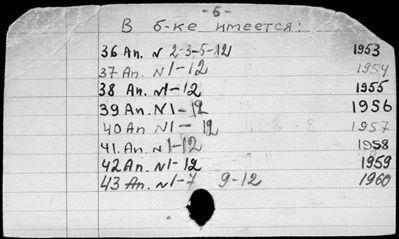 -6-
В б-ке имеется:
36 Ап. N 2-3-5-12 1953
37 Ап. N1-12 1954
38 Ап. N1-12 1955
39 Ап N1-12 1956
40 Ап N1-12 1957
41. Ап. N1-12 1958
42 Ап. N1-12 1959
43 Ап. N1-7 9-12 1960